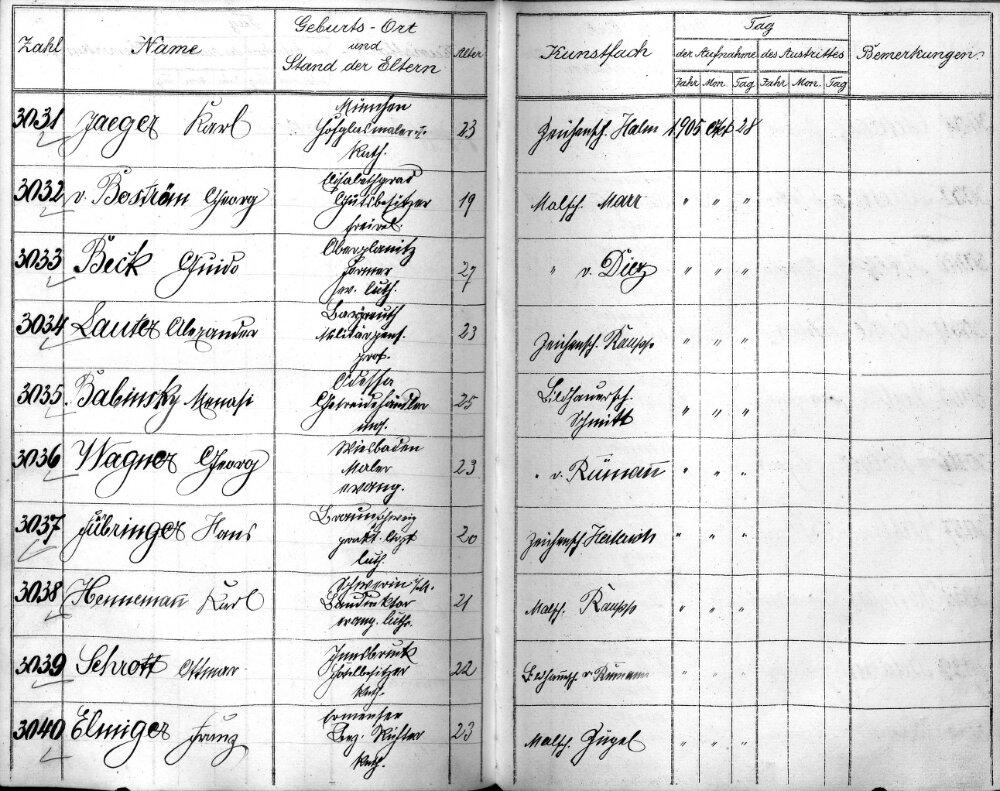 Zahl Name Geburts-Ort und Stand der Eltern Alter Kunstfach Tag der Aufnahme des Austrittes Bemerkungen
Jahr Mon Tag Jahr Mon. Tag
3031 Jaeger Karl München 23 Zeichensch. Halm 1905 Okt 28
Hofglasmaler
kath.
3032 v. Boström Georg Elisabethgrad 19 Malsch. Marr " " "
Gutsbesitzer
freirel.
3033 Beck Guido Oberplanitz 27 " v. Diez " " "
Farmer
ev. luth.
3034 Lauter Alexander Bayreuth 23 Zeichensch. Raupp " " "
Militärpens.
prot.
3035 Babinsky Monasi Odessa 25 Bildhauersch. Schmitt " " "
Getreidehändler
mos.
3036 Wagner Georg Wiesbaden 23 " v. Rümann " " "
Maler
evang.
3037 Führinger Hans Braunschweig 20 Zeichensch. Herterich " " "
prakt. Arzt
luth.
3038 Hennemann Karl Schwerin 21 Malsch. Raupp " " "
evang. luth.
3039 Schrott Ottmar Innsbruck 22 Bildhauersch. v. Rümann " " "
Hotelbesitzer
kath.
3040 Elmiger Franz Ermensee 23 Malsch. Zügel " " "
Bez. Richter
kath.